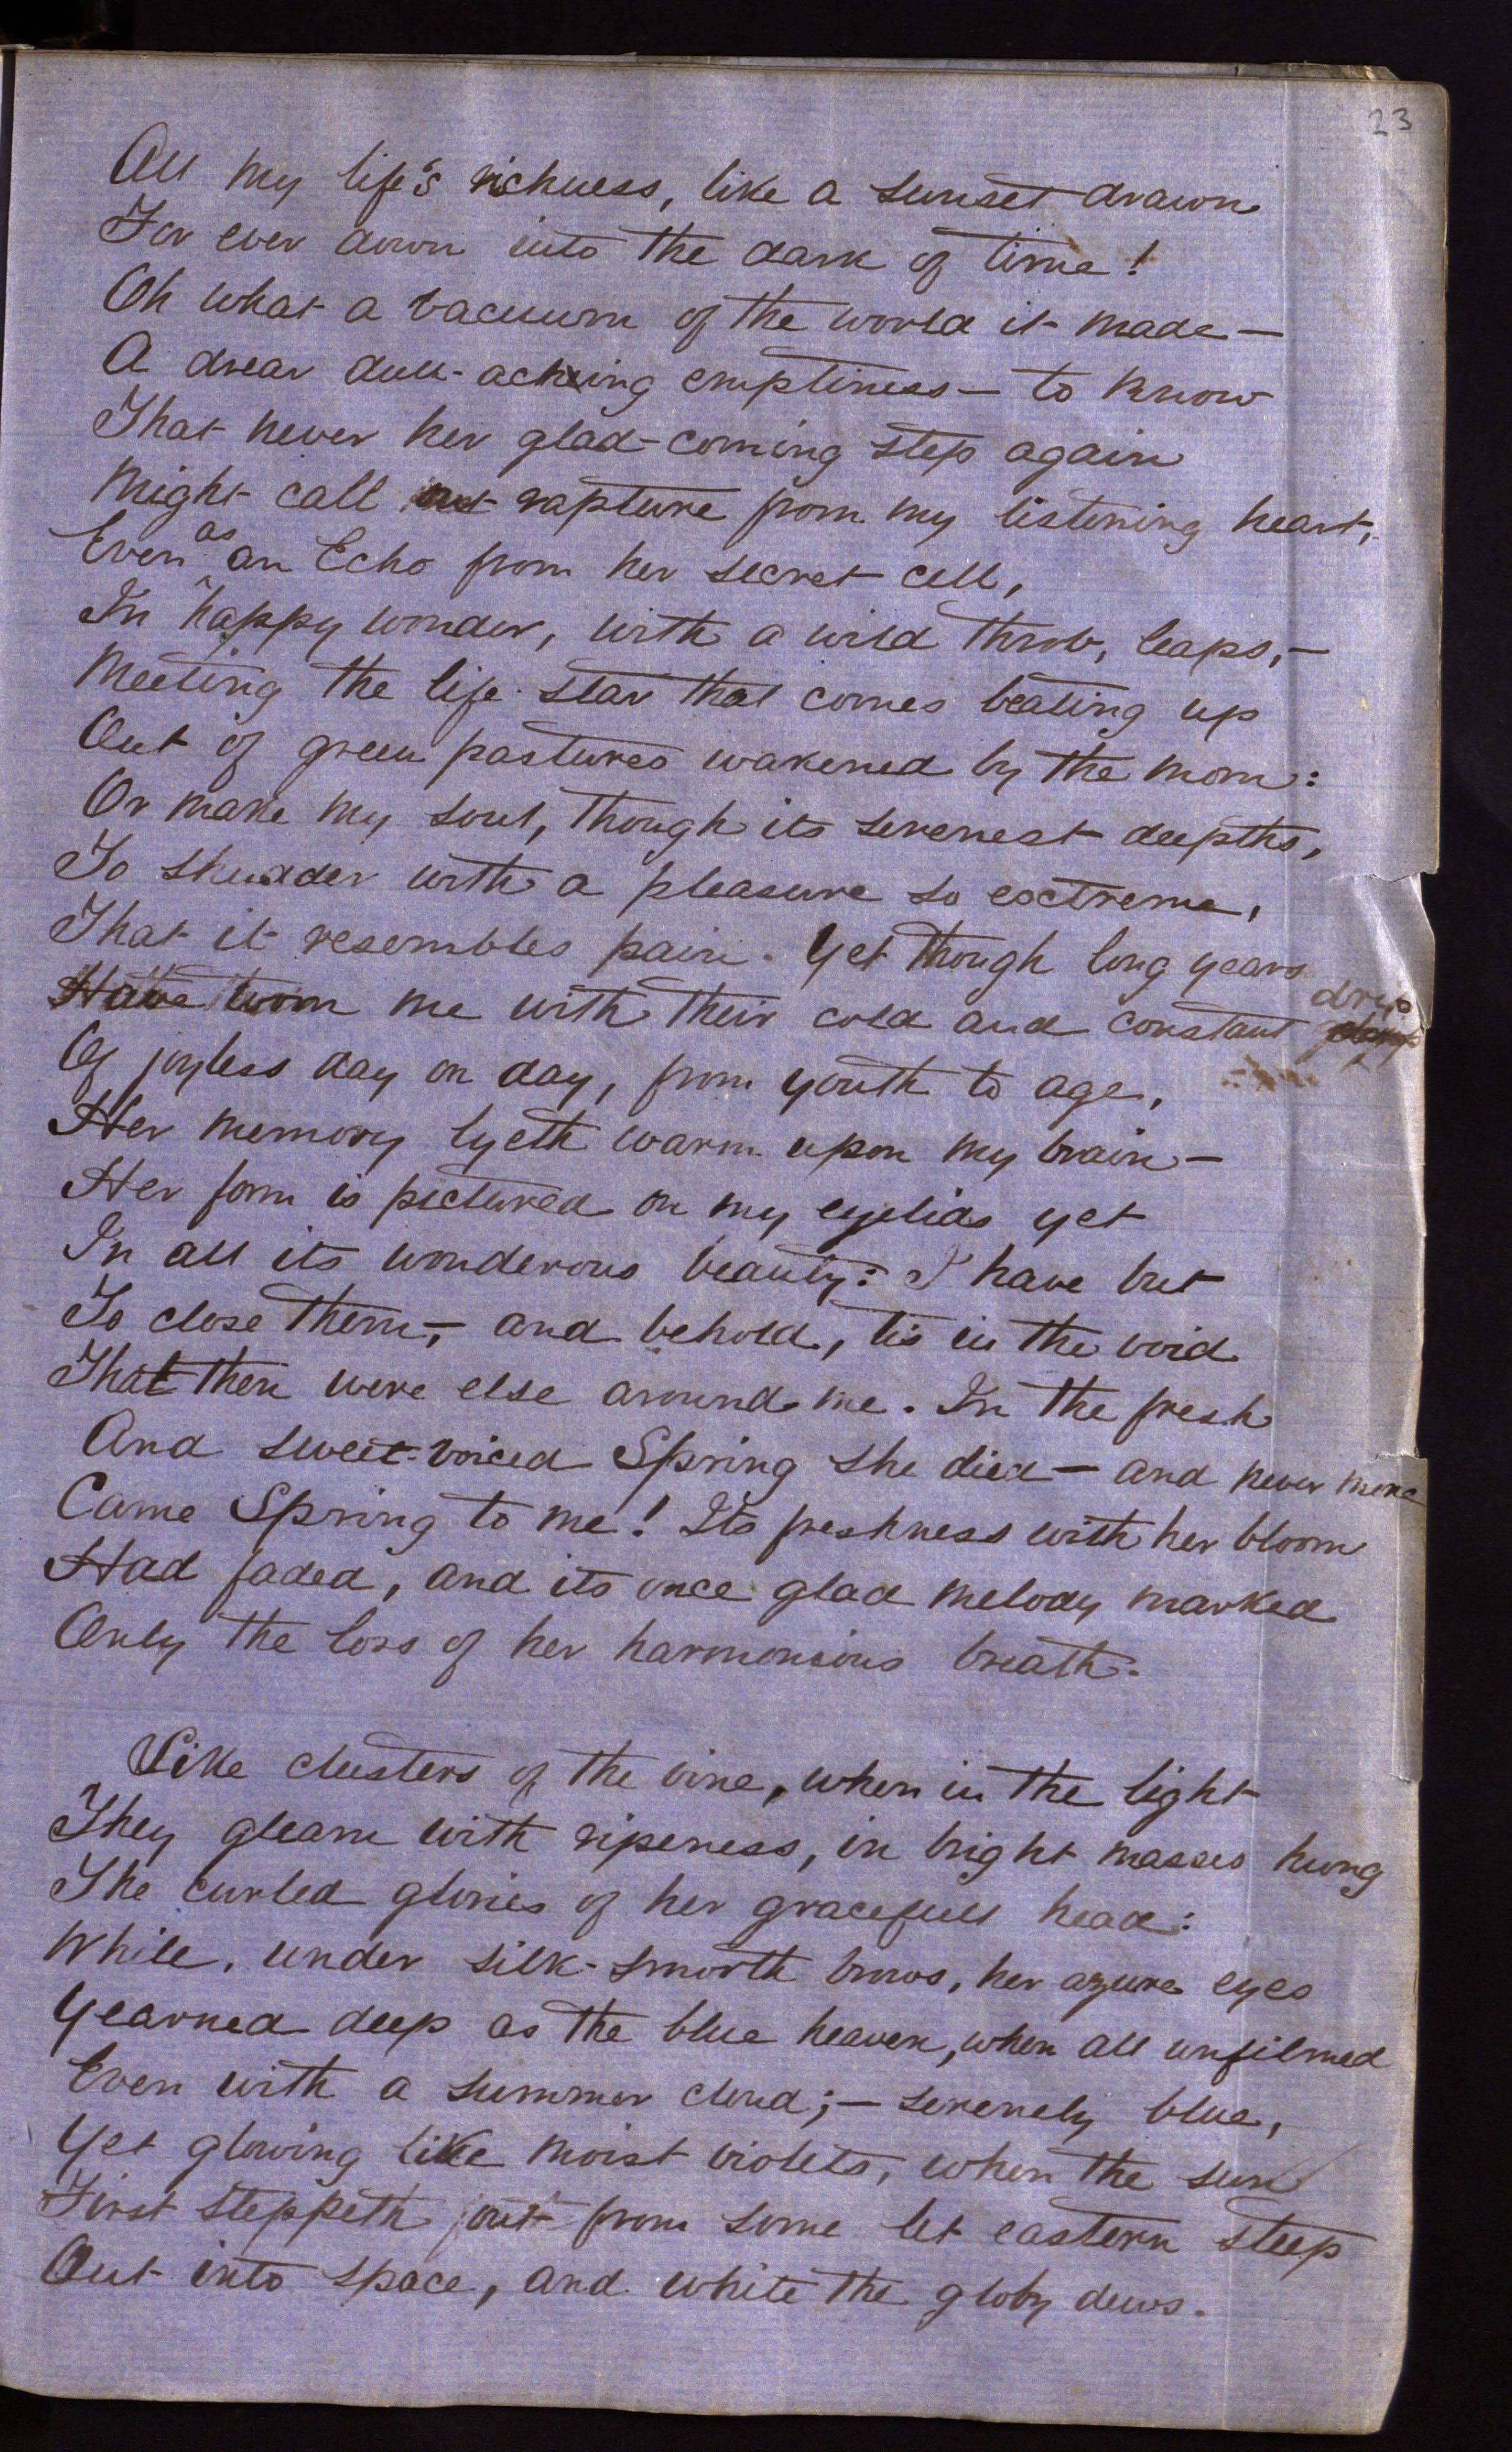 23
All my life's richness, like a sunset drawn
For ever down into the dark of time!
Oh what a vacuum of the world it made—
A drear dull-acheing emptiness— to know
That never her glad-coming step again
Might call out rapture from my listening heart,
Even as an Echo from her secret cell,
In happy wonder, with a wild throb, leaps,—
Meeting the life star that comes beating up
Out of green pastures wakened by the morn:
Or make my soul, though its serenest deepths,
To shudder with a pleasure so exctreme,
That it resembles pain. Yet though long years
Have worn me with their cold and constant drip
Of joyless day on day, from youth to age,
Her memory lyeth warm upon my brain—
Her form is pictured on my eyelids yet
In all its wonderous beauty: I have but
To close them,— and behold, tis in the void
That then were else around me. In the fresh
And sweet-voiced Spring she died— and never more
Came Spring to me! Its freshness with her bloom
Had faded, and its once glad melody marked
Only the loss of her harmonious breath.
Like clusters of the vine, when in the light
They gleam with ripeness, in bright masses hung
The curled glories of her gracefull head:
While, under silk-smooth brows, her azure eyes
Yearned deep as the blue heaven, when all unfilmed
Even with a summer cloud;— serenely blue,
Yet glowing like moist violets, when the sun
First steppeth out from some let eastern steep
Out into space, and white the globy dews.